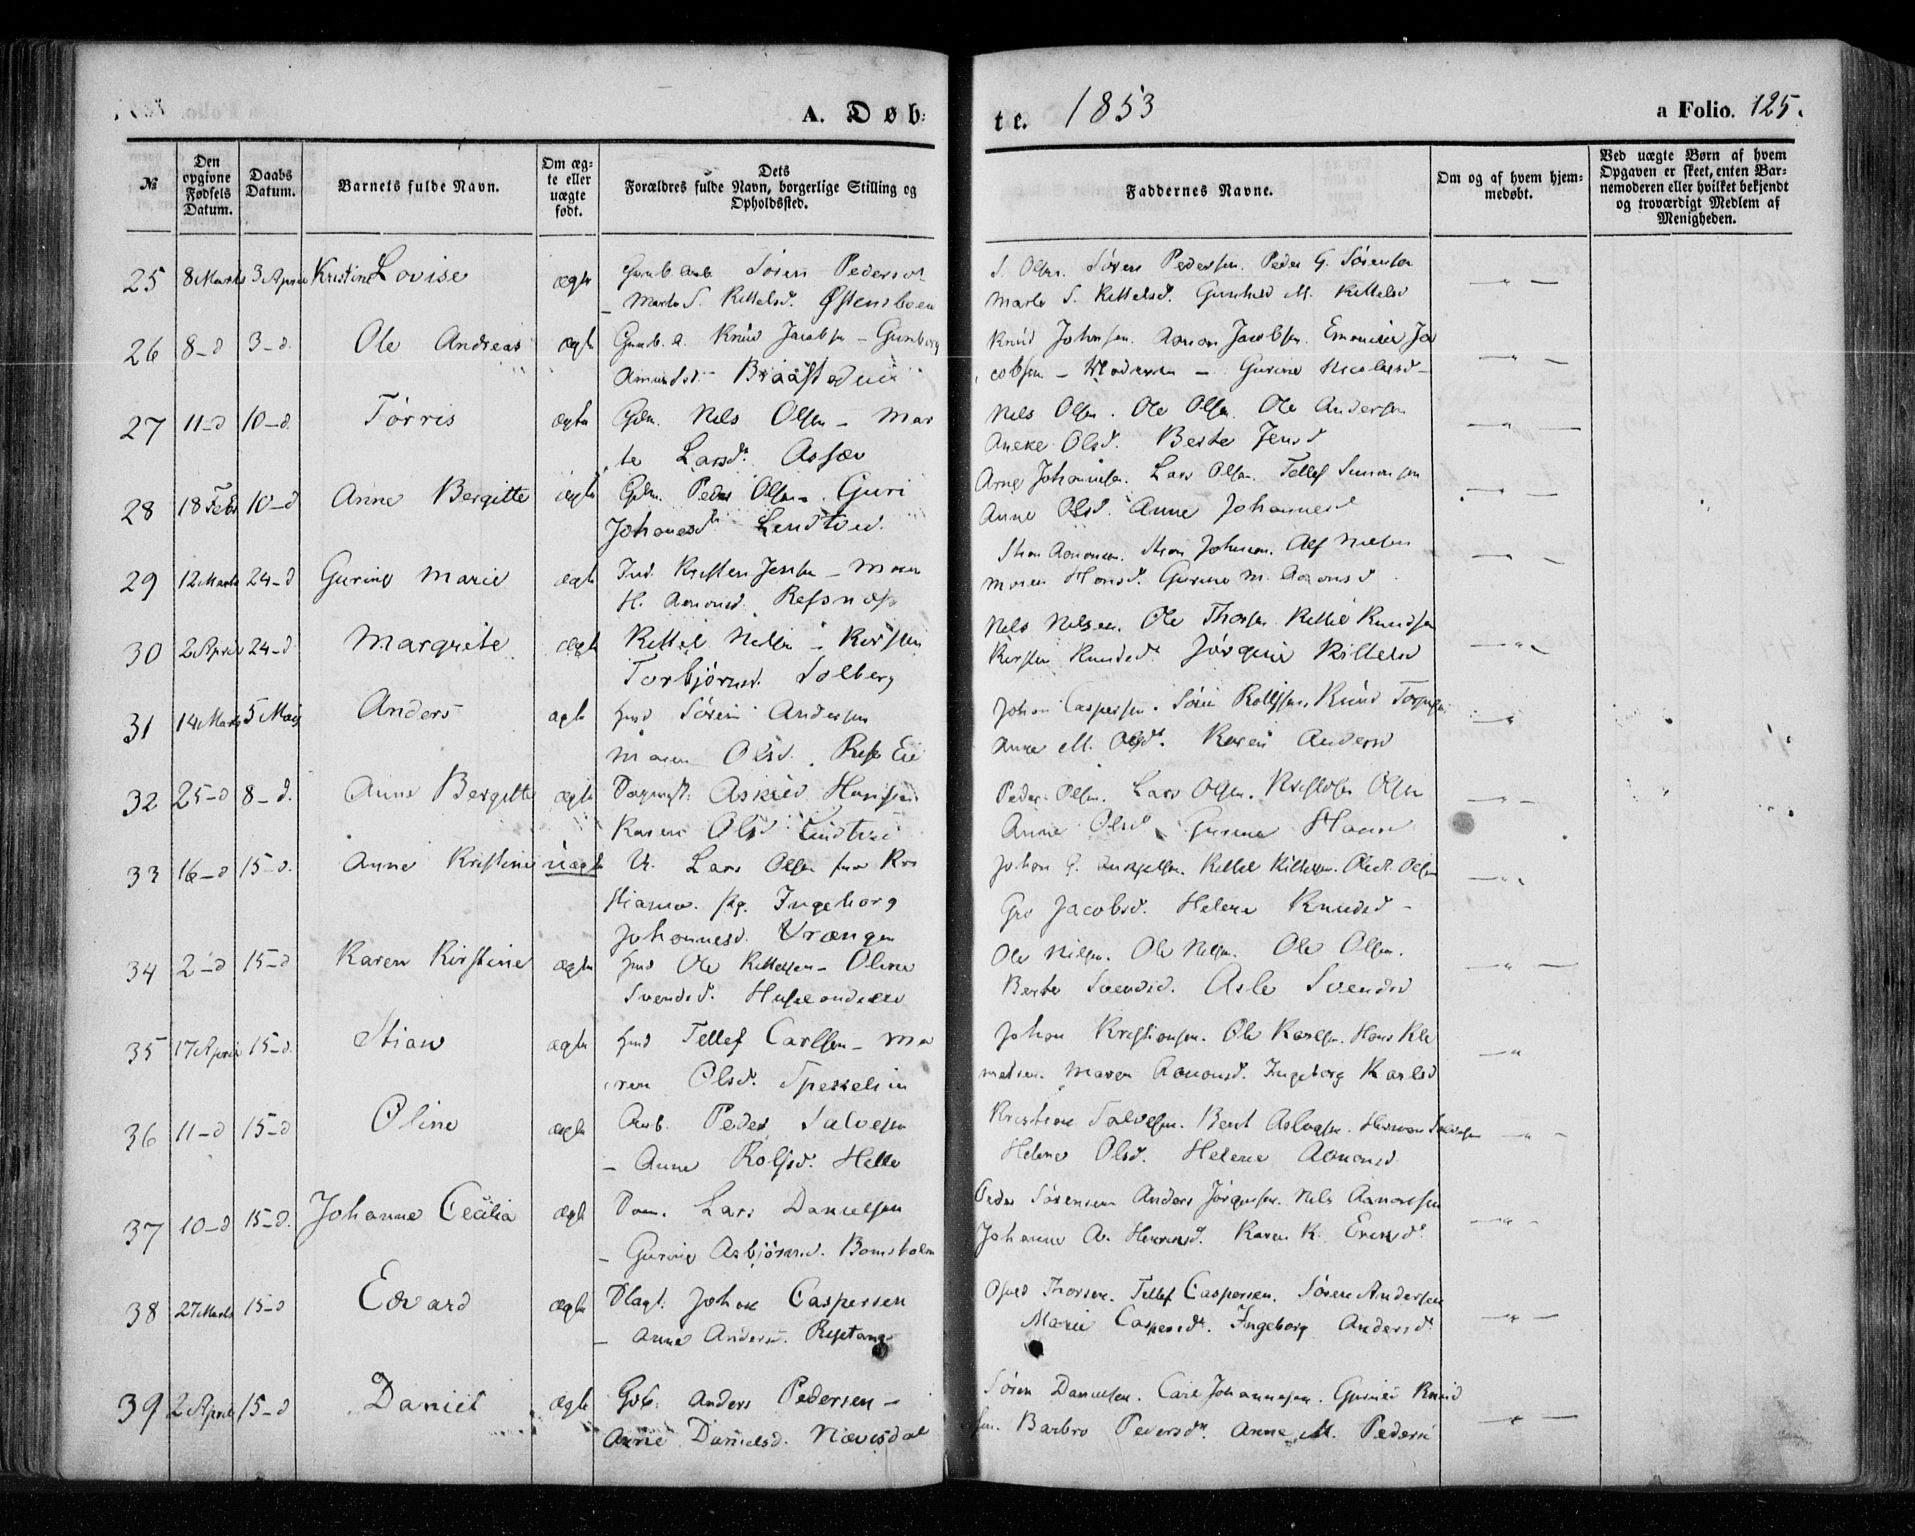 A. Døb:
te. 1853
a Folio. 125.
№
Den opgivne Fødsels Datum.
Daabs Datum.
Barnets fulde Navn.
Om ægte eller uægte født.
Dets Forældres fulde Navn, borgerlige Stilling og Opholdssted.
Faddernes Navne.
Om og af hvem hjemmedøbt.
Ved uægte Børn af hvem Opgaven er skeet, enten Barnemoderen eller hvilket bekjendt og troværdigt Medlem af Menigheden.
25 8 Marts 3 April Kristine Lovise ægte Søren Pedersen
Marte S. Kittelsd.
S. Olsen. Søren Pedersen. Peder G. Sørensen
Marte S. Kittelsd. Gunhild M. Kittelsd
26 8_d 3_d. Ole Andreas ægte Knud Jacobsen - Gunborg
Amundsd.
Knud Johnsen. Aanon Jacobsen. Ja
cobsen - Gurine Nicolaisd
27 11_d 10_d. Tørris ægte Gdm. Nels Olsen - Mar
te Larsd.
Nels Olsen. Ole Olsen. Ole Andersen
Aneke Olsd. Berte Jensd
28 18 Feb 10_d Anne Bergitte ægte Gdm. Peder Olsen - Guri
Johanesd. Lindtved.
Arne Johannesen. Lars Olsen. Tellef Simonsen
Anne Olsd. Anne Johannesd
29 12 Marts 24_d Gurine Marie ægte Ind. Kristen Jensen - Maren
H. Aanonsd.
Stian Aanonsen. Stian Johnsen. Alf Nielsen
Maren Hansd. Gurine M. Aanonsd.
30 2 April 24_d Margrete ægte Kittel Nielsen - Kirsten
Torbjørnsd. Solberg
Nels Nelsen. Ole Thorsen. Kittel Knudsen
Kirsten Knudsd. Jørgine Kittelsd
31 14 Marts 5 Maij Anders ægte Hmd Søren Andersen
Maren Olsd.
Johan Caspersen. Søren Knud
Anne M. Olsd. Karen Andersd
32 25_d 8_d. Anne Bergitte ægte Hansen
Karen Olsd Lindtved
Peder Olsen. Lars Olsen. Kristofer Olsen
Anne Olsd. Gurine Hansd
33 16_d 15_d. Anne Kristine uægte U. Lars Olsen fra Kri
stians. pig. Ingeborg
Johannesd. Vrængen
Johan G. Kittel Kittelsen. Olsen
Gro Jacobsd. Helene Knudsd -
34 2_d 15_d Karen Kirstine ægte Hmd Ole Kittelsen - Oline
Svendsd.
Ole Nilsen. Ole Nelsen. Ole Olsen.
Berte Svendsd. Asle Svendsd
35 17 April 15_d. Stian ægte Hmd Tellef Carlsen - Ma
ren Olsd.
Johan Kristiansen. Ole Karlsen. Hans Kle
metsen. Maren Aanonsd. Ingeborg Karlsd
36 11_d 15_d Oline ægte Arb. Peder Salvesen
- Anne Rolfsd. Helle
Kristian Salvesen. Bent Aslagsen. Herman Salvesen
Helene Olsd. Helene Aanonsd
37 10_d 15_d. Johanne Cecilia ægte Lars Danielsen
- Gurine Asbjørnsd. Bomsholm
Peder Sørensen Anders Jørgensen. Nels Aanonsen
Johanne A. Karen K.
38 27 Marts 15_d Edvard ægte Plagt. Johan Caspersen
- Anne Andersd.
Thorsen. Tellef Caspersen. Søren Andersen
Marie Caspersd. Ingeborg Andersd.
39 2 April 15_d Daniel ægte Gdb. Anders Pedersen -
Anne Danielsd.
Søren Danielsen. Carl Johannesen. Knud
sen. Barbro Pedersd. Anne M. Pedersd